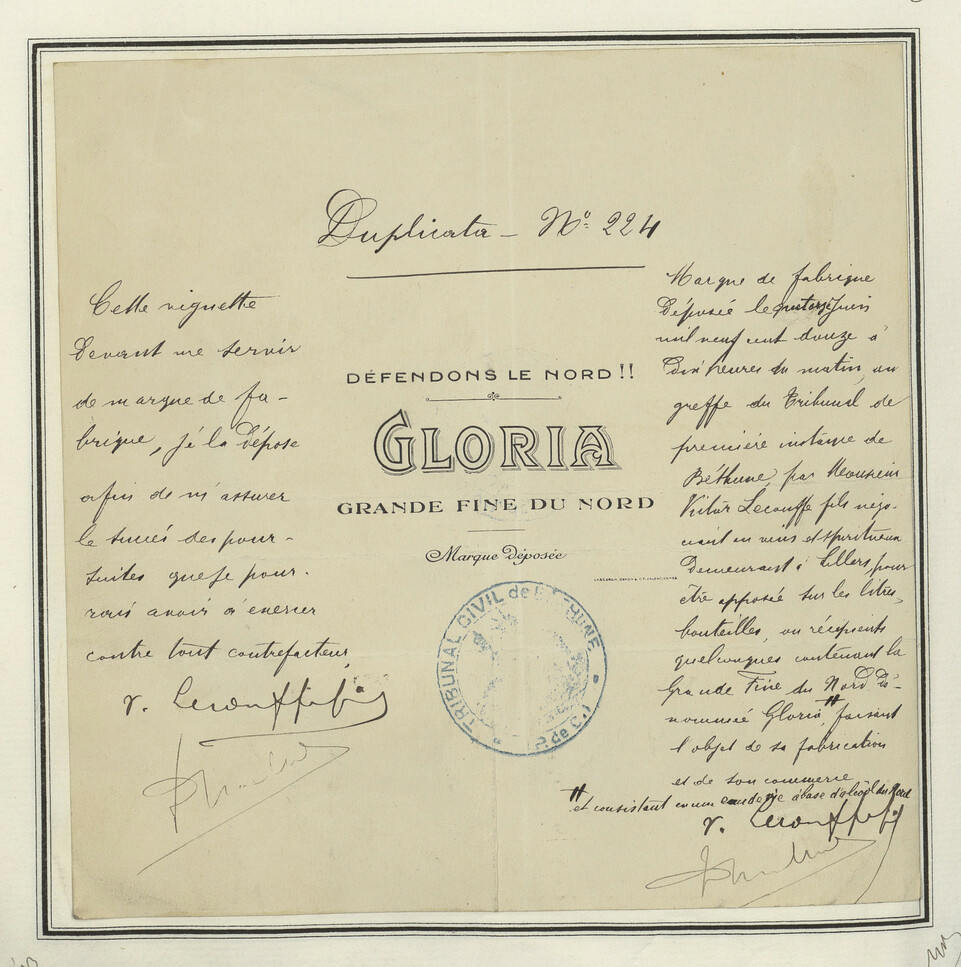 Duplicata - Nº 224
Cette vignette
devant me servir
de marque de fa-
brique, je la dépose
afin de m'assurer
le succés des pour-
suites que je pour-
rais avoir à exercer
contre tout contrefacteur,
V. Lecouffe fils
DÉFENDONS LE NORD!!
GLORIA
GRANDE FINE DU NORD
Marque Déposée
TRIBUNAL CIVIL de BETHUNE
P. de C.
Marque de fabrique
déposée le quatorze Juin
mil neuf cent douze à
dix heures du matin, au
greffe du Tribunal de
première instance de
Béthune, par Monsieur
Victor Lecouffe fils négo-
ciant en vins et spiritueux
demeurant à Lillers, pour
être apposée sur les litres,
bouteilles, ou récipients
quelconques contenant la
Grande Fine du Nord dé-
nommée Gloria, faisant
l'objet de sa fabrication
et de son commerce
et consistant en une eau de vie à base d'alcool du Nord
V. Lecouffe fils